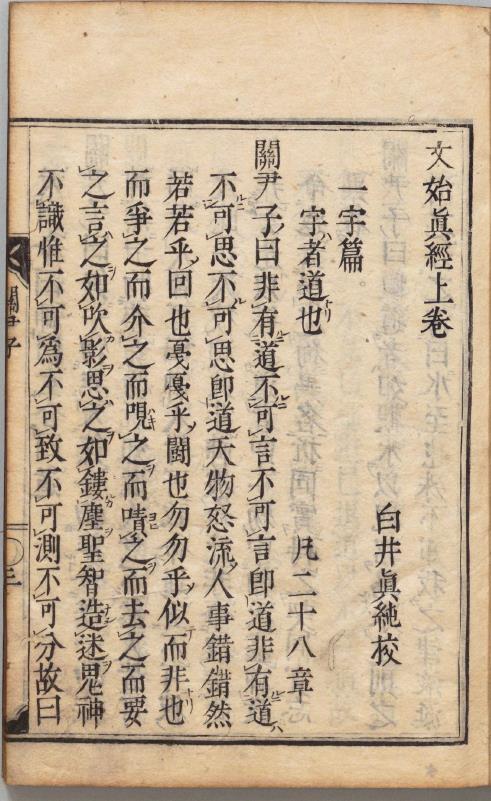 文始眞經上卷
白井眞純校
一字篇
字者道也 凡二十八章
關尹子曰非有道不可言不可言卽道非有道
不可思不可思卽道天物怒流人事錯錯然
若若乎回也戛戛乎鬪也勿勿乎似而非也
而爭之而介之而哯之而嘖之而去之而要
之言之如吹影思之如鏤塵聖智造迷鬼神
不識惟不可爲不可致不可測不可分故曰
關尹子